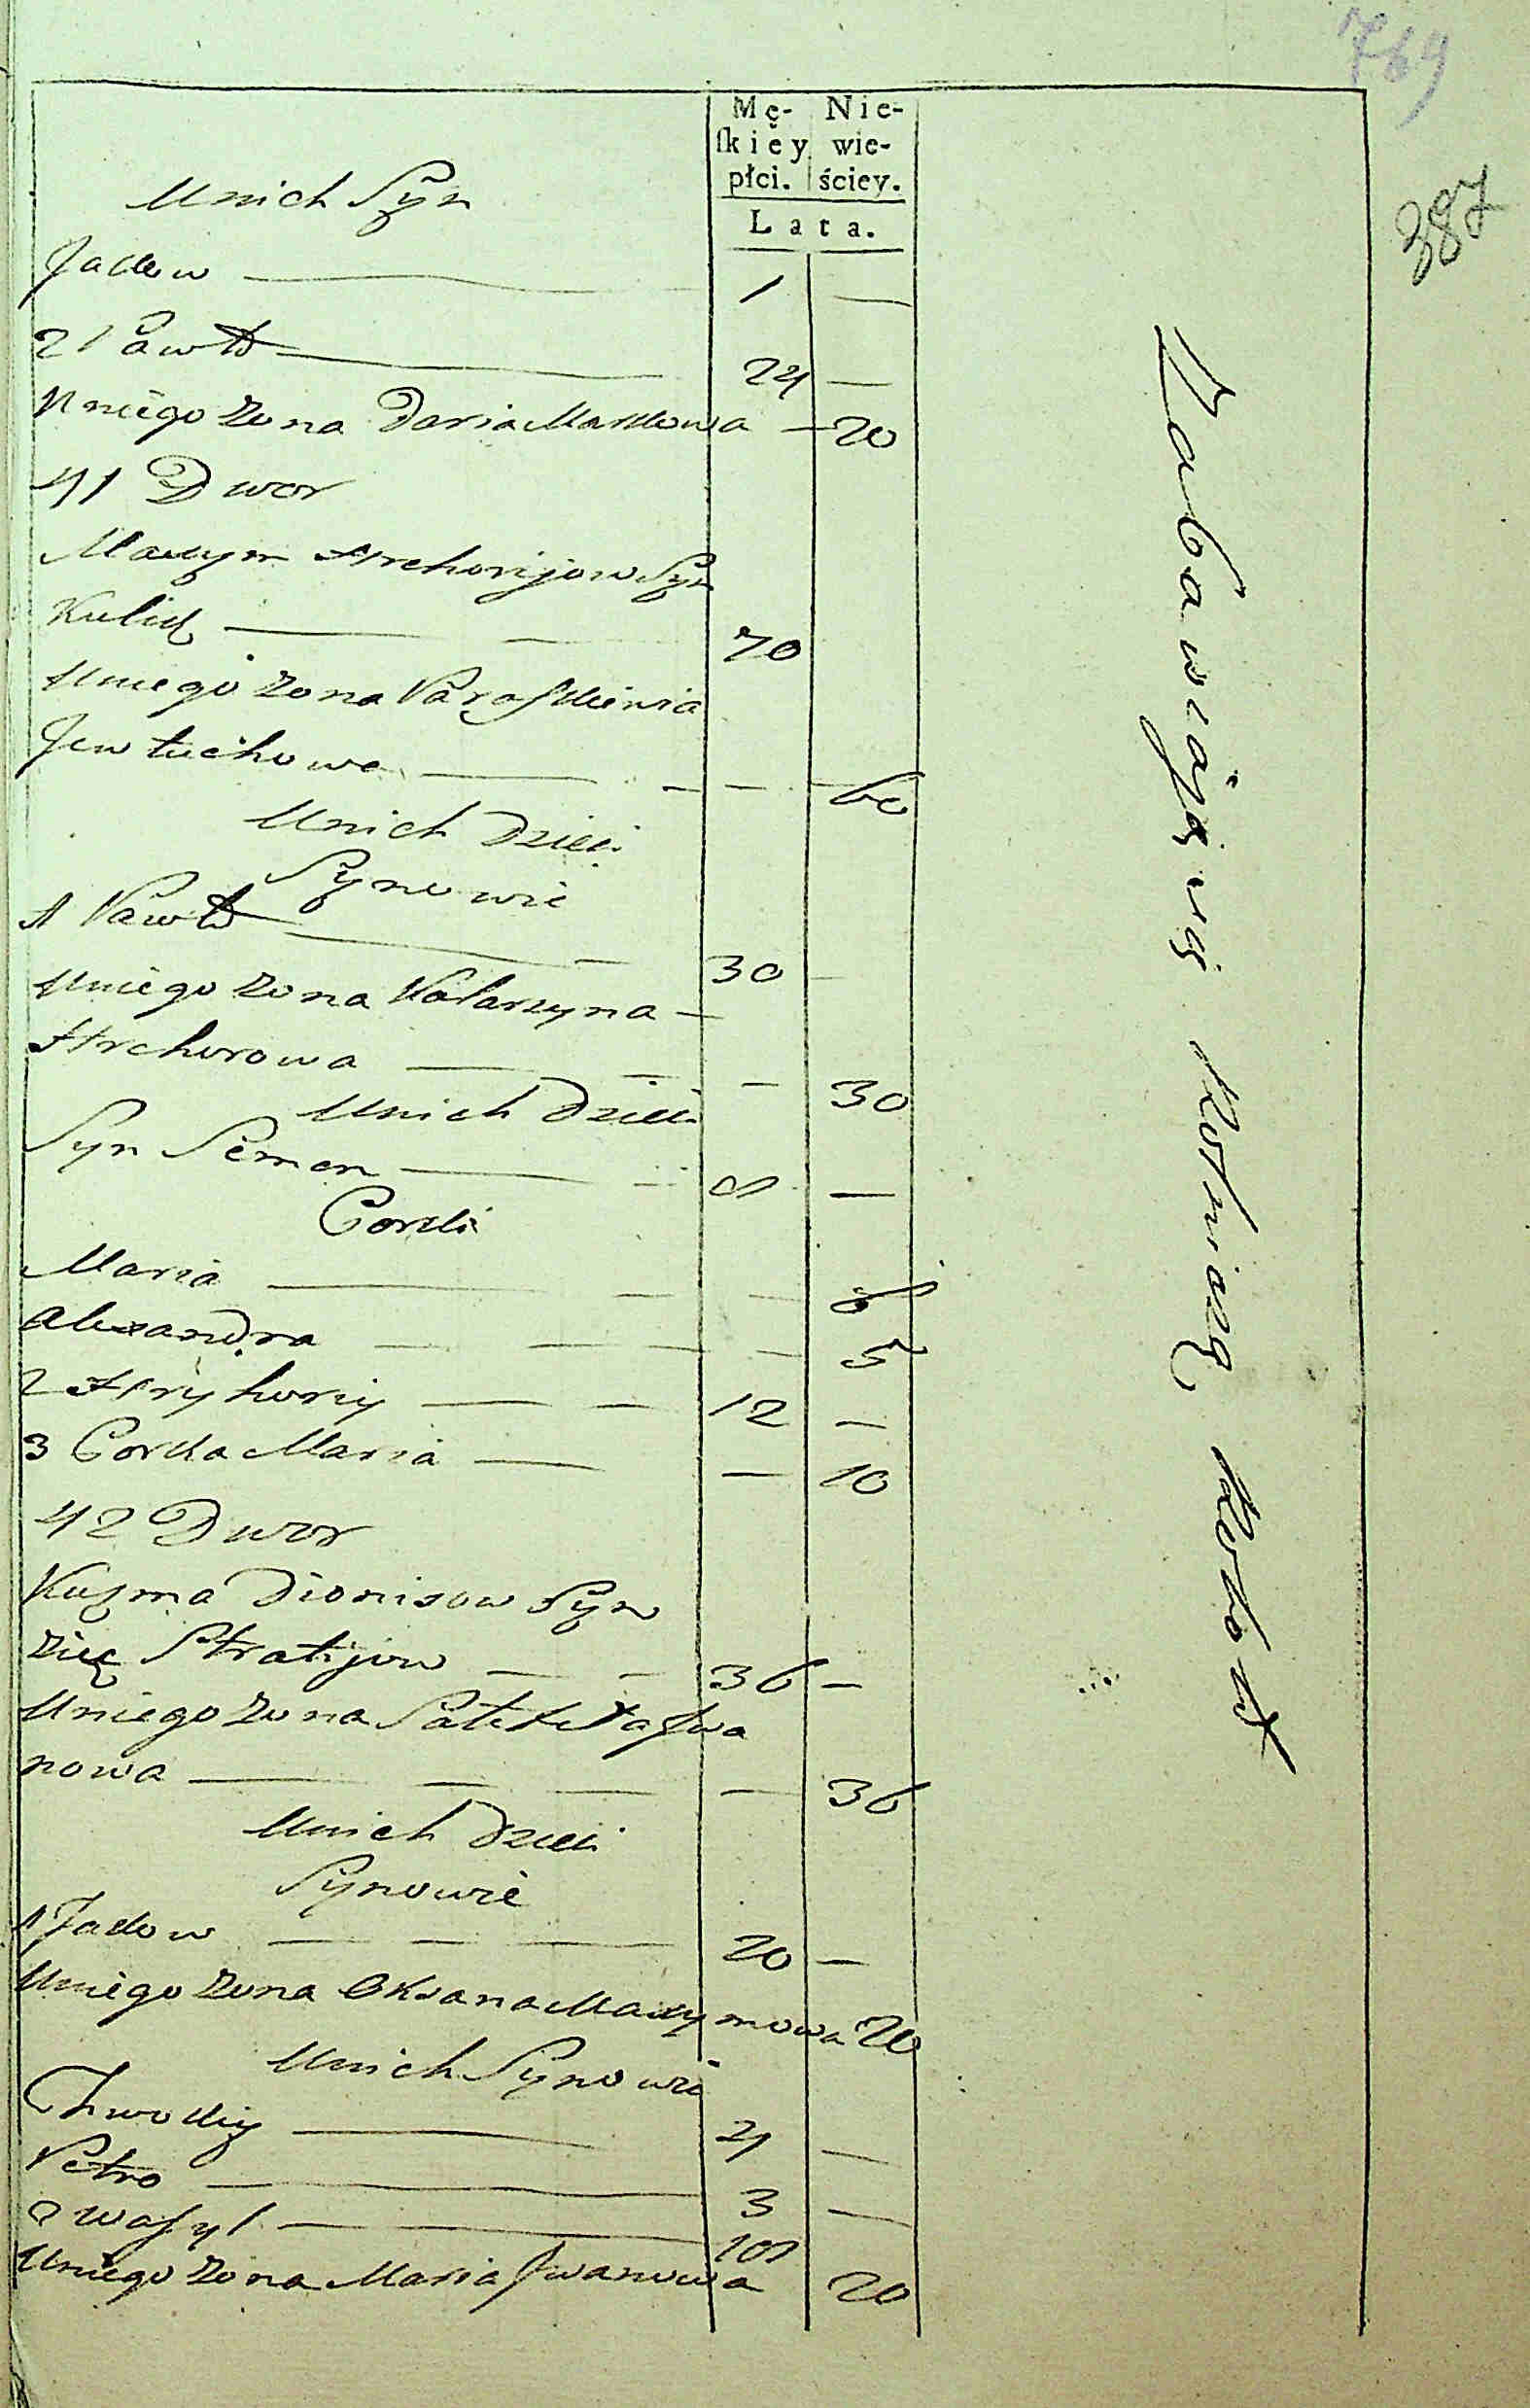 769
387
Mę- Nie-
ſkiey wie-
płci. ściey.
Lata.
Unich Syn
Jakow — 1 —
2 Pawło — 24 —
Uniego żona Daria Markowa — 20
41 Dwor
Maxym Hrehorijow Syn
Kulik — 70
Uniego żona Paraskiewia
Jewtuchowa — — 60
Unich Dzieci
Synowie
1 Pawło — 30 —
Uniego żona Katarzyna —
Hrehorowa — — 30
Unich Dzieci
Syn Semen — 8 —
Corki
Maria — — 6
Alexandra — — 5
2 Hryhoriy — 12 —
3 Corka Maria — — 10
42 Dwor
Kuzma Dionisow Syn
Zięć Stratijow — 36 —
Uniego żona Iwa
nowa — — 36
Unich Dzieci
Synowie
1 Jakow — 20 —
Uniego żona Oksana Maxymowa 20
Unich Synowie
4 —
Petro — 3 —
2 Wasyl — 18
Uniego żona Maria Iwanowa 20
Zabawiaiący się Rolniczą Robotą